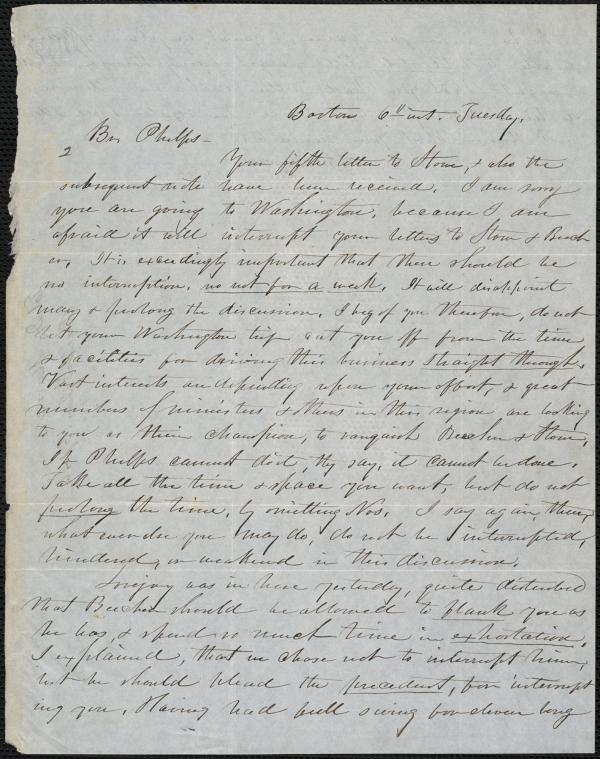 Boston 6th inst. Tuesday.
Bro Phelps-
2
Your fifth letter to Stowe, & also the
subsequent note have been received. I am sorry
you are going to Washington, because I am
afraid it will interrupt your letters to Stow & Beech
er. It is exceedingly important that there should be
no interruption, no not for a week. It will disappoint
many & prolong the discussion. I beg of you therefore, do not
let your Washington trip cut you off from the time
& facilities for driving this business straight through.
Vast interests are depending upon your effort, & great
numbers of ministers & others in this region are looking
to you as their champion, to vanquish Beecher & Stowe.
If Phelps cannot do it, they say, it cannot be done.
Take all the time & space you want, but do not
prolong the time, by omitting Nos. I say again, then,
whatever else you may do, do not be interrupted,
hindered, or weakened in this discussion.
Lovejoy was in here yesterday, quite disturbed
that Beecher should be allowed to flank you as
he has, & spend so much time in exhortation.
I explained, that we chose not to interrupt him,
lest he should plead the precedent, for interrupt
ing you. Having had full swing for eleven long